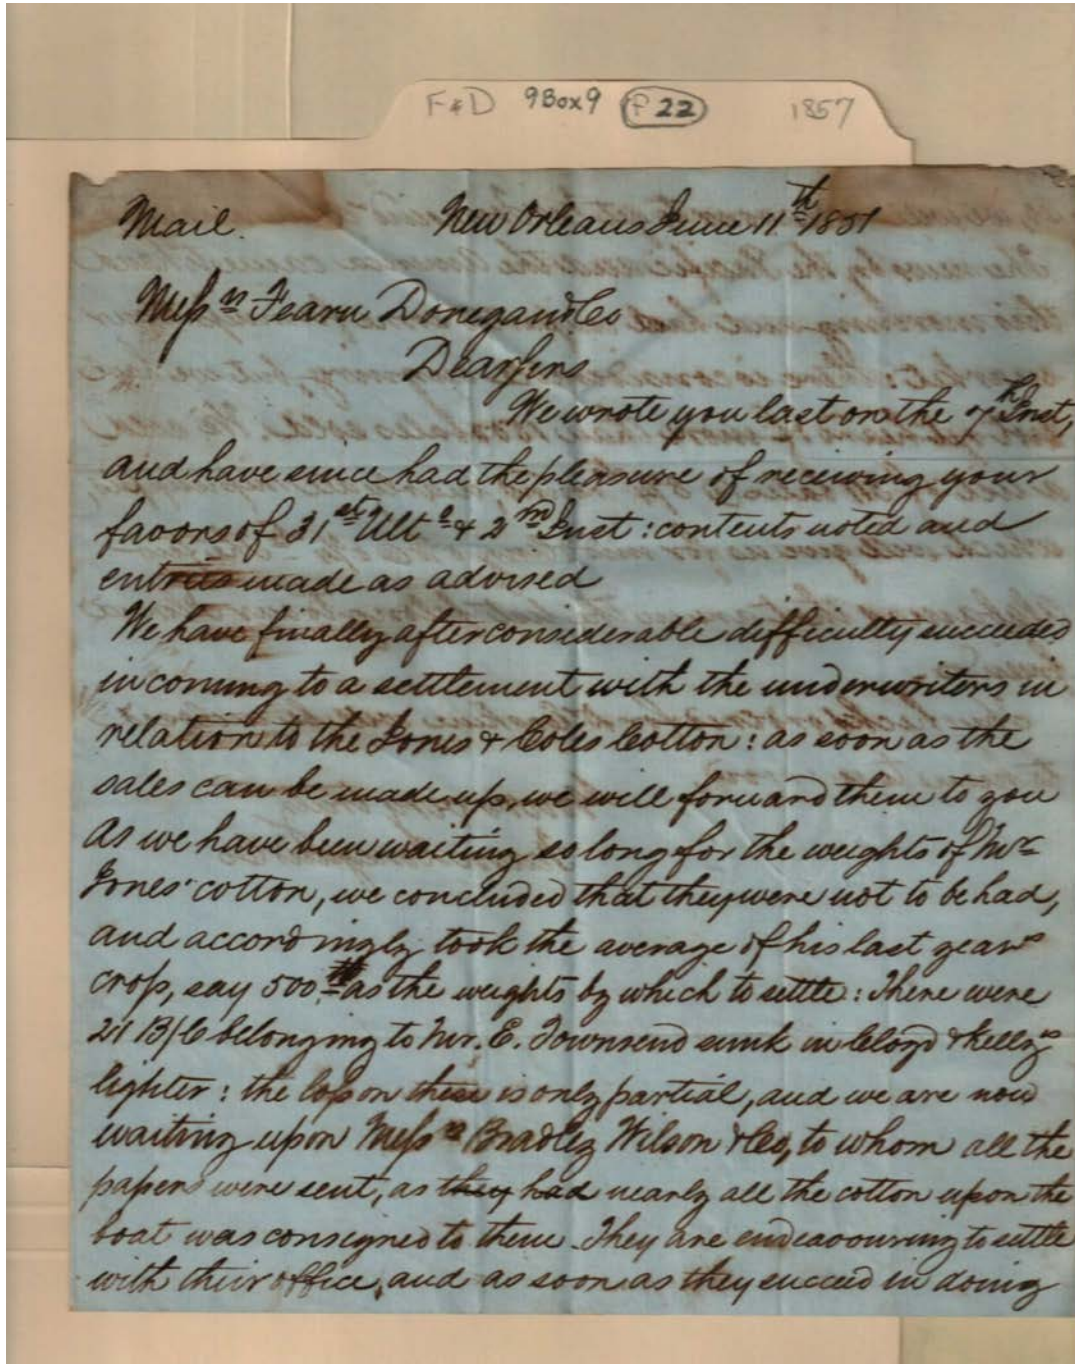 F&D 9Box9 P 22 1857
Mail. New Orleans June 11th 1851
Messrs Fearn Donegan & Co
Dear Sirs
We wrote you last on the 7th Inst,
and have since had the pleasure of receiving your
favors of 31st Ulto & 2nd Inst: contents noted and
entries made as advised
We have finally after considerable difficulty succeeded
in coming to a settlement with the underwriters in
relation to the Jones & Coles Cotton: as soon as the
sales can be made up, we will forward them to you
As we have been waiting so long for the weights of Mr
Jones' cotton, we concluded that they were not to be had,
and accordingly took the average of his last years
crop, say 500 as the weights by which to settle: There were
21 B/C belonging to Mr. E. Townsend sunk in Cloyd & Kellys
lighter: the loss on these is only partial, and we are now
waiting upon Messrs Bradley Wilson & Co, to whom all the
papers were sent, as they had nearly all the cotton upon the
boat was consigned to them. They are endeavouring to settle
with their office, and as soon as they succeed in doing